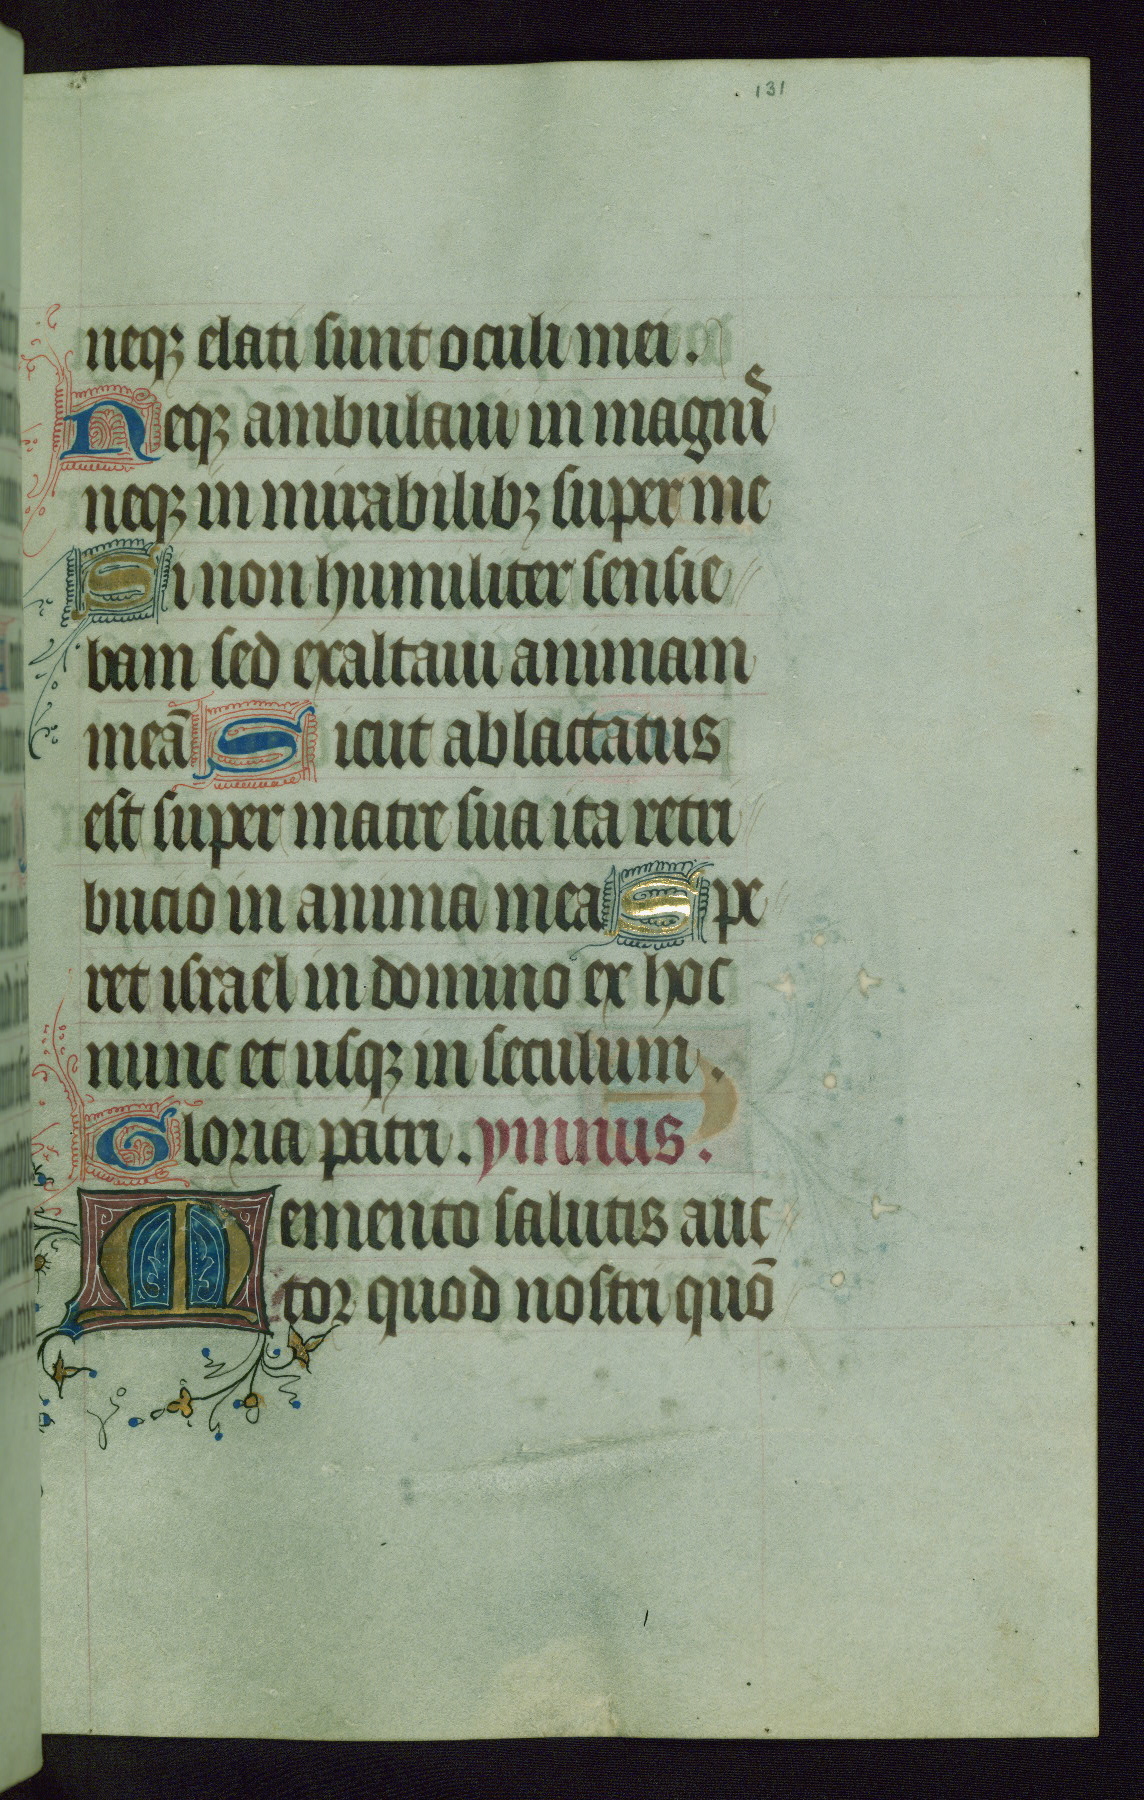 131
neqꝫ elati sunt oculi mei.
Neqꝫ ambulaui in magnis
neqꝫ in mirabilibꝫ super me
Si non humiliter sensie
bam sed exaltaui animam
meā Sicut ablactatus
est super matre sua ita retri
bucio in anima mea Spe
ret israel in domino ex hoc
nunc et usqꝫ in seculum.
Gloria patri. ymnus.
Memento salutis auc
tor quod nostri quō